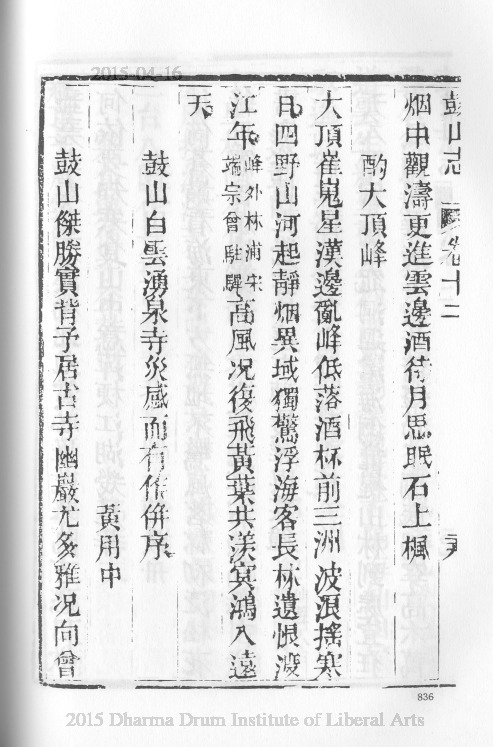 2015-04-16
鼓山志 卷十二
烟中觀濤更進雲邊酒待月思眠石上楓
酌大頂峰
大頂崔嵬星漢邊亂峰低落酒杯前三洲波浪搖寒
日四野山河起靜烟異域獨驚浮海客長林遺恨渡
江年峰外林浦宋端宗曾駐驆高風况復飛黃葉共羡冥鴻入遠
天
鼓山白雲湧泉寺災感而有作併序
黃用中
鼓山傑勝實昔予居古寺幽巖尤多雅况向曾
836
2015 Dharma Drum Institute of Liberal Arts